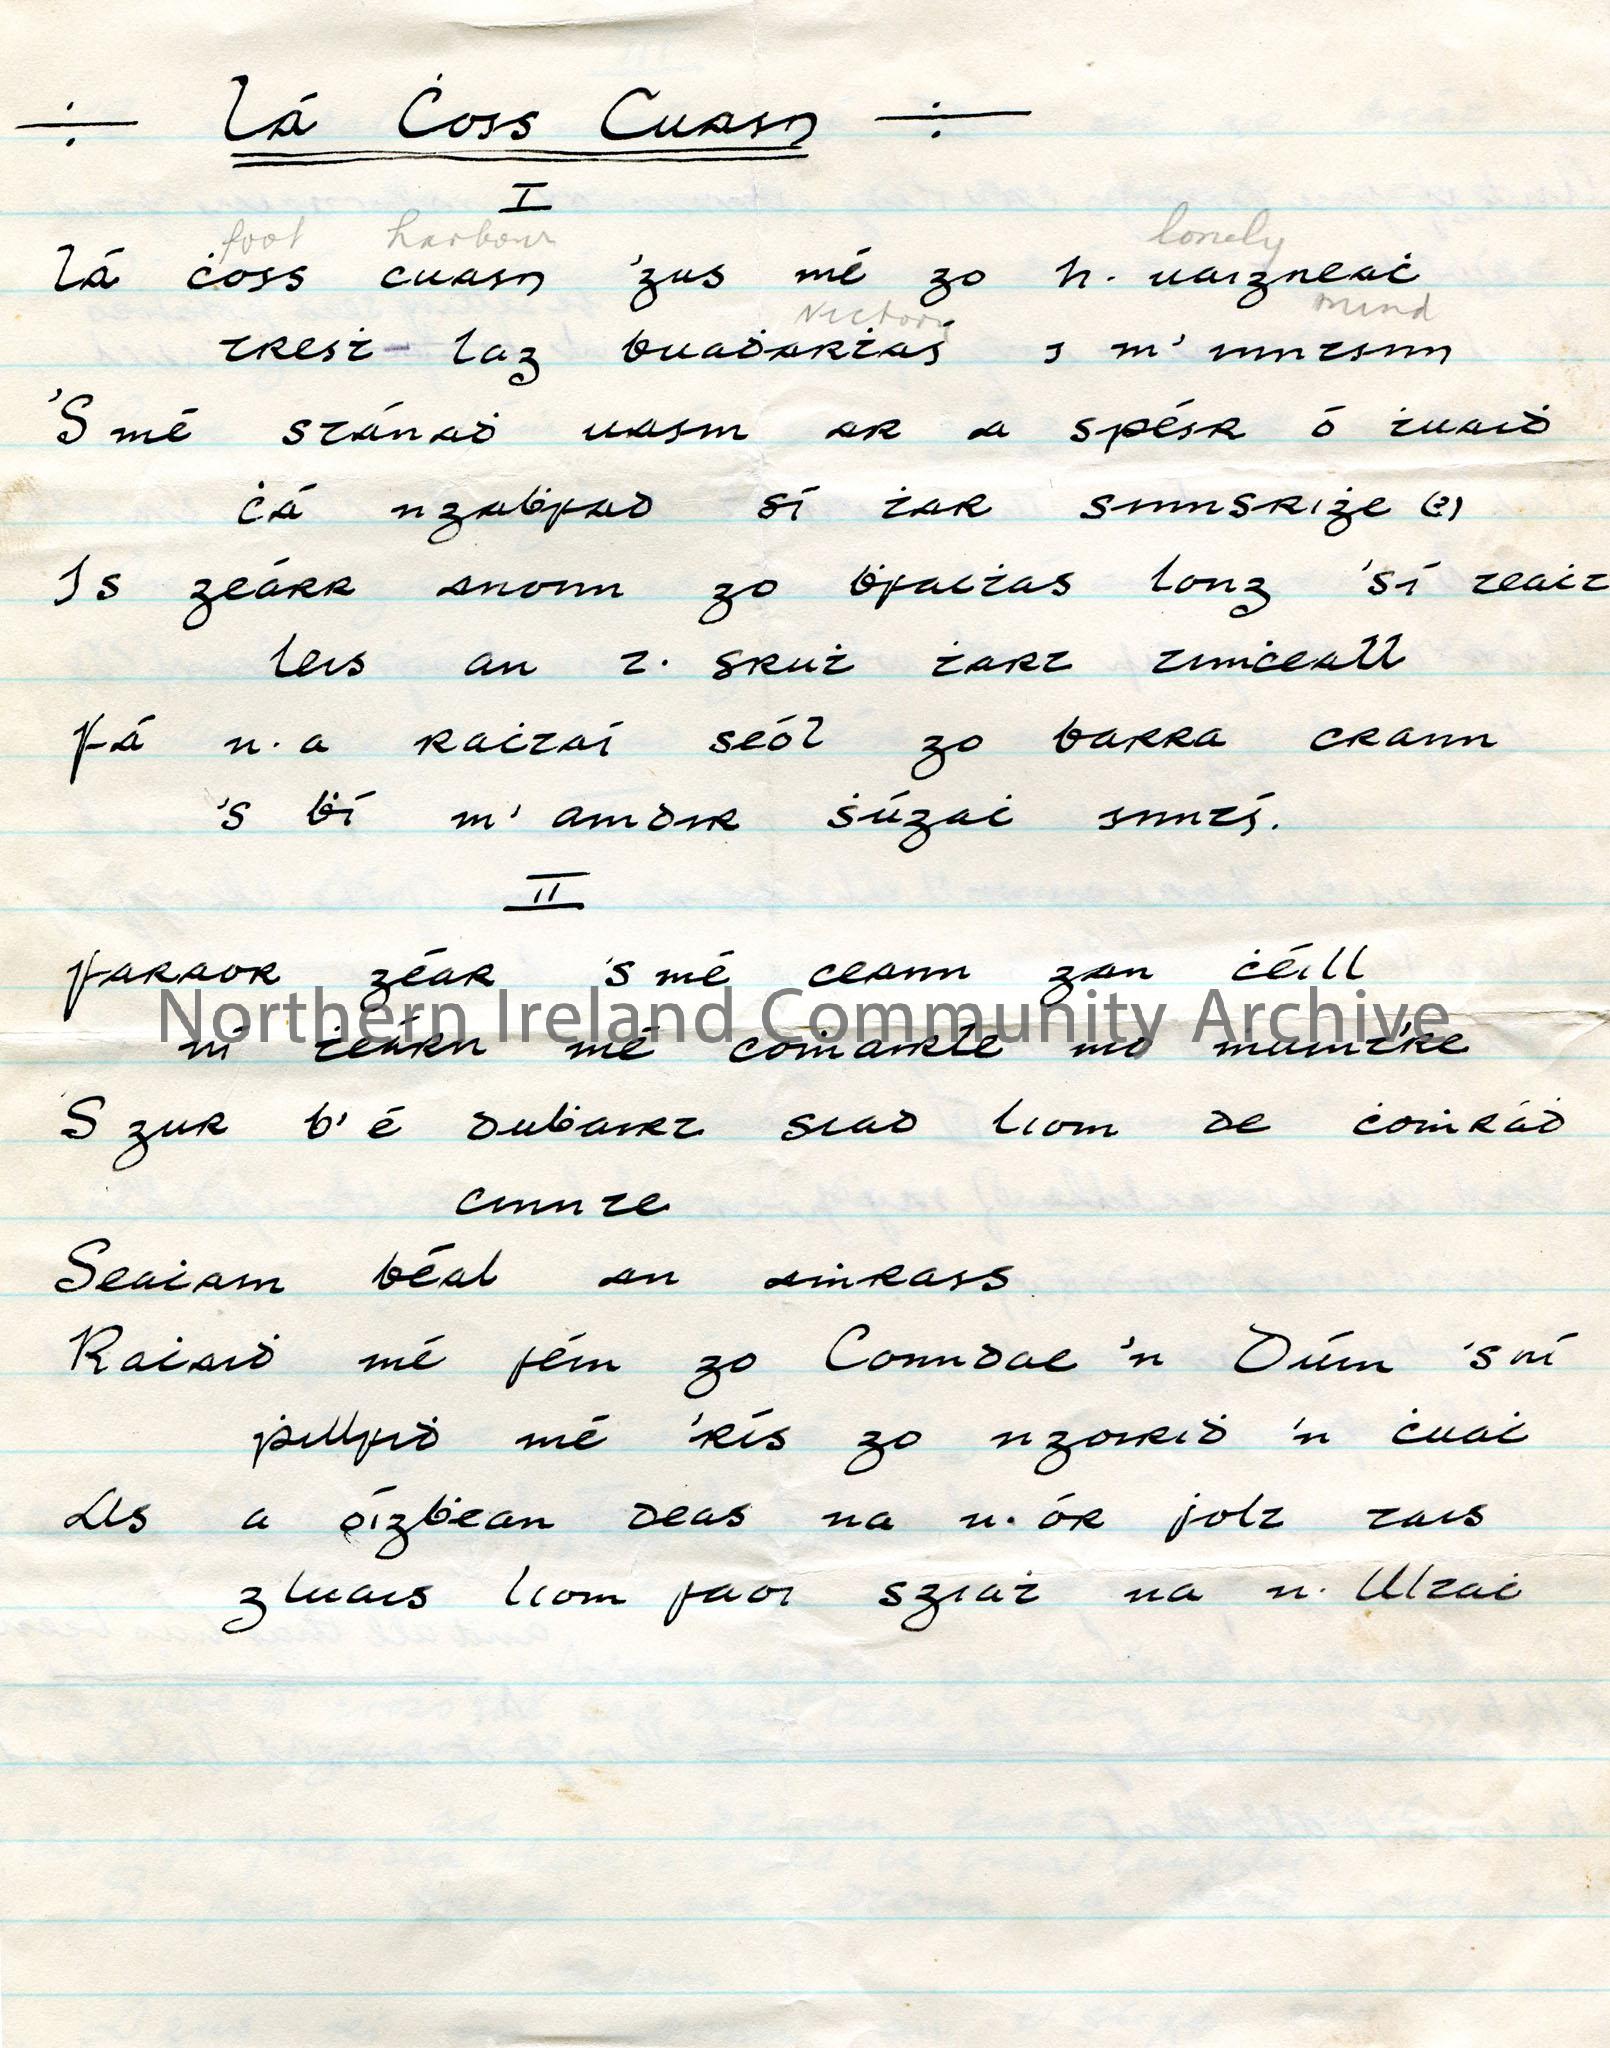 ÷ Lá Ċois Cuain ÷
I
foot harbour lonely
Lá ċois cuain 'gus mé go h. uaigneaċ
Victory mind
treiṫ-lag buaḋarṫaí i m' inntinn
'S mé stánaḋ uaim ar a spéir ó ṫuaiḋ
ċá ngaḃfad sí ṫar innsriġe (?)
Is geárr anonn go ḃfaċtas long 'sí teaċt
leis an t. sruṫ ṫart timċeall
Fá n.a raċtaí seól go barra crann
's ḃí m' amdir ṡúgaċ innti.
II
Faraor géar 's mé ceann gan ċéill
ní ṫeárn mé coṁairle mo muintre
S gur b' é duḃairt siad liom de ċoṁráḋ
cinnte
Seaċain béal an aṁrais
Raċaiḋ mé féin go Conndae 'n Dúin 's ní
ṗillfiḋ mé 'rís go ngoiriḋ 'n ċuaċ
As a óigḃean deas na n. ór folt tais
gluais liom faoi sgiaṫ na n. Ultaċ
Northern Ireland Community Archive